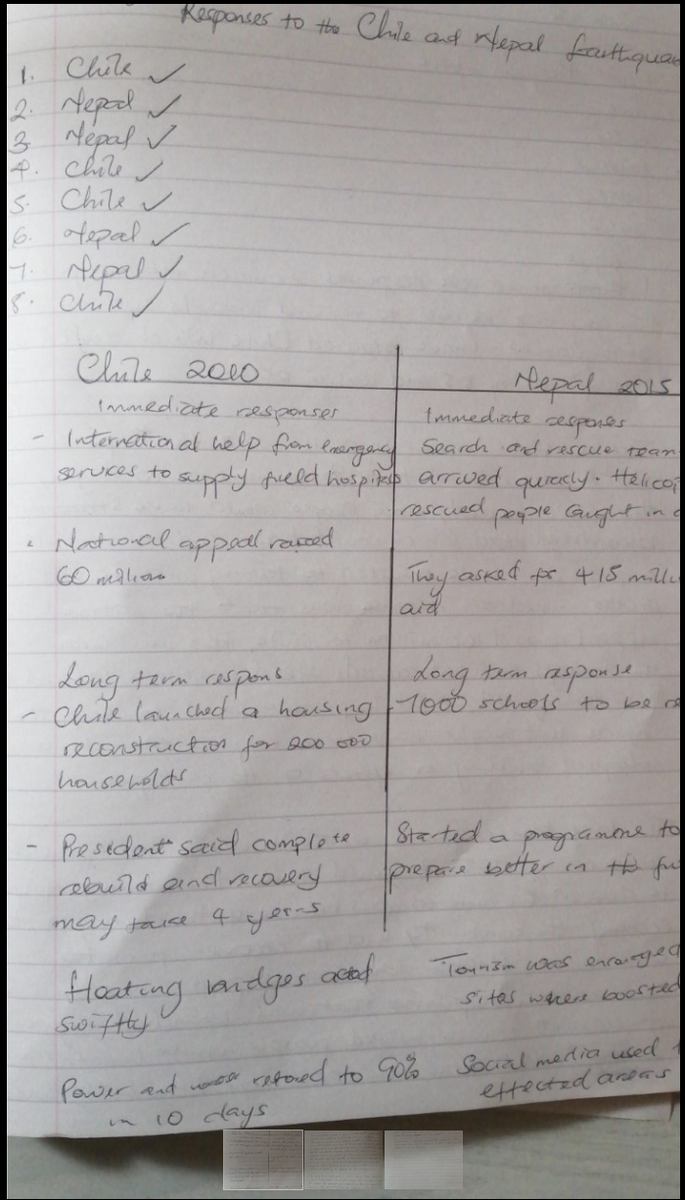 Responses to the Chile and Nepal Earthquak
1. Chile ✓
2. Nepal ✓
3. Nepal ✓
4. Chile ✓
5. Chile ✓
6. Nepal ✓
7. Nepal ✓
8. Chile ✓
Chile 2010
Immediate responses
- International help from emergency
services to supply field hospitals
• National appeal raised
60 million
Long term respons
- Chile launched a housing
reconstruction for 200 000
households
- President said complete
rebuild and recovery
may take 4 years
Floating bridges acted
swiftly
Power and restored to 90%
in 10 days
Nepal 2015
Immediate responses
Search and rescue team
arrived quickly. Helico
rescued people caught in
They asked for 415 milli
aid
Long term response
-7000 schools to be re
Started a programme to
prepare better in the fu
Tourism was encouraged
sites where boosted
Social media used
effected areas